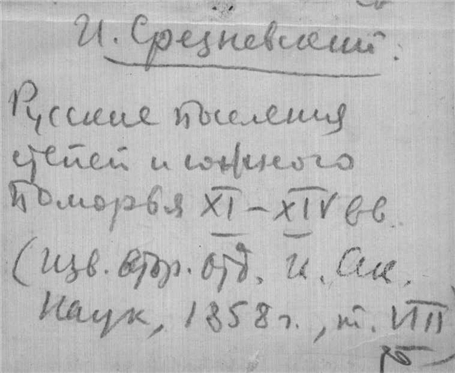 И. Срезневский.
Русские поселения
степей и южного
Поморья XI – XIV вв.
(Изв. втор. отд. И. Ак.
Наук, 1858 г., т. VIII